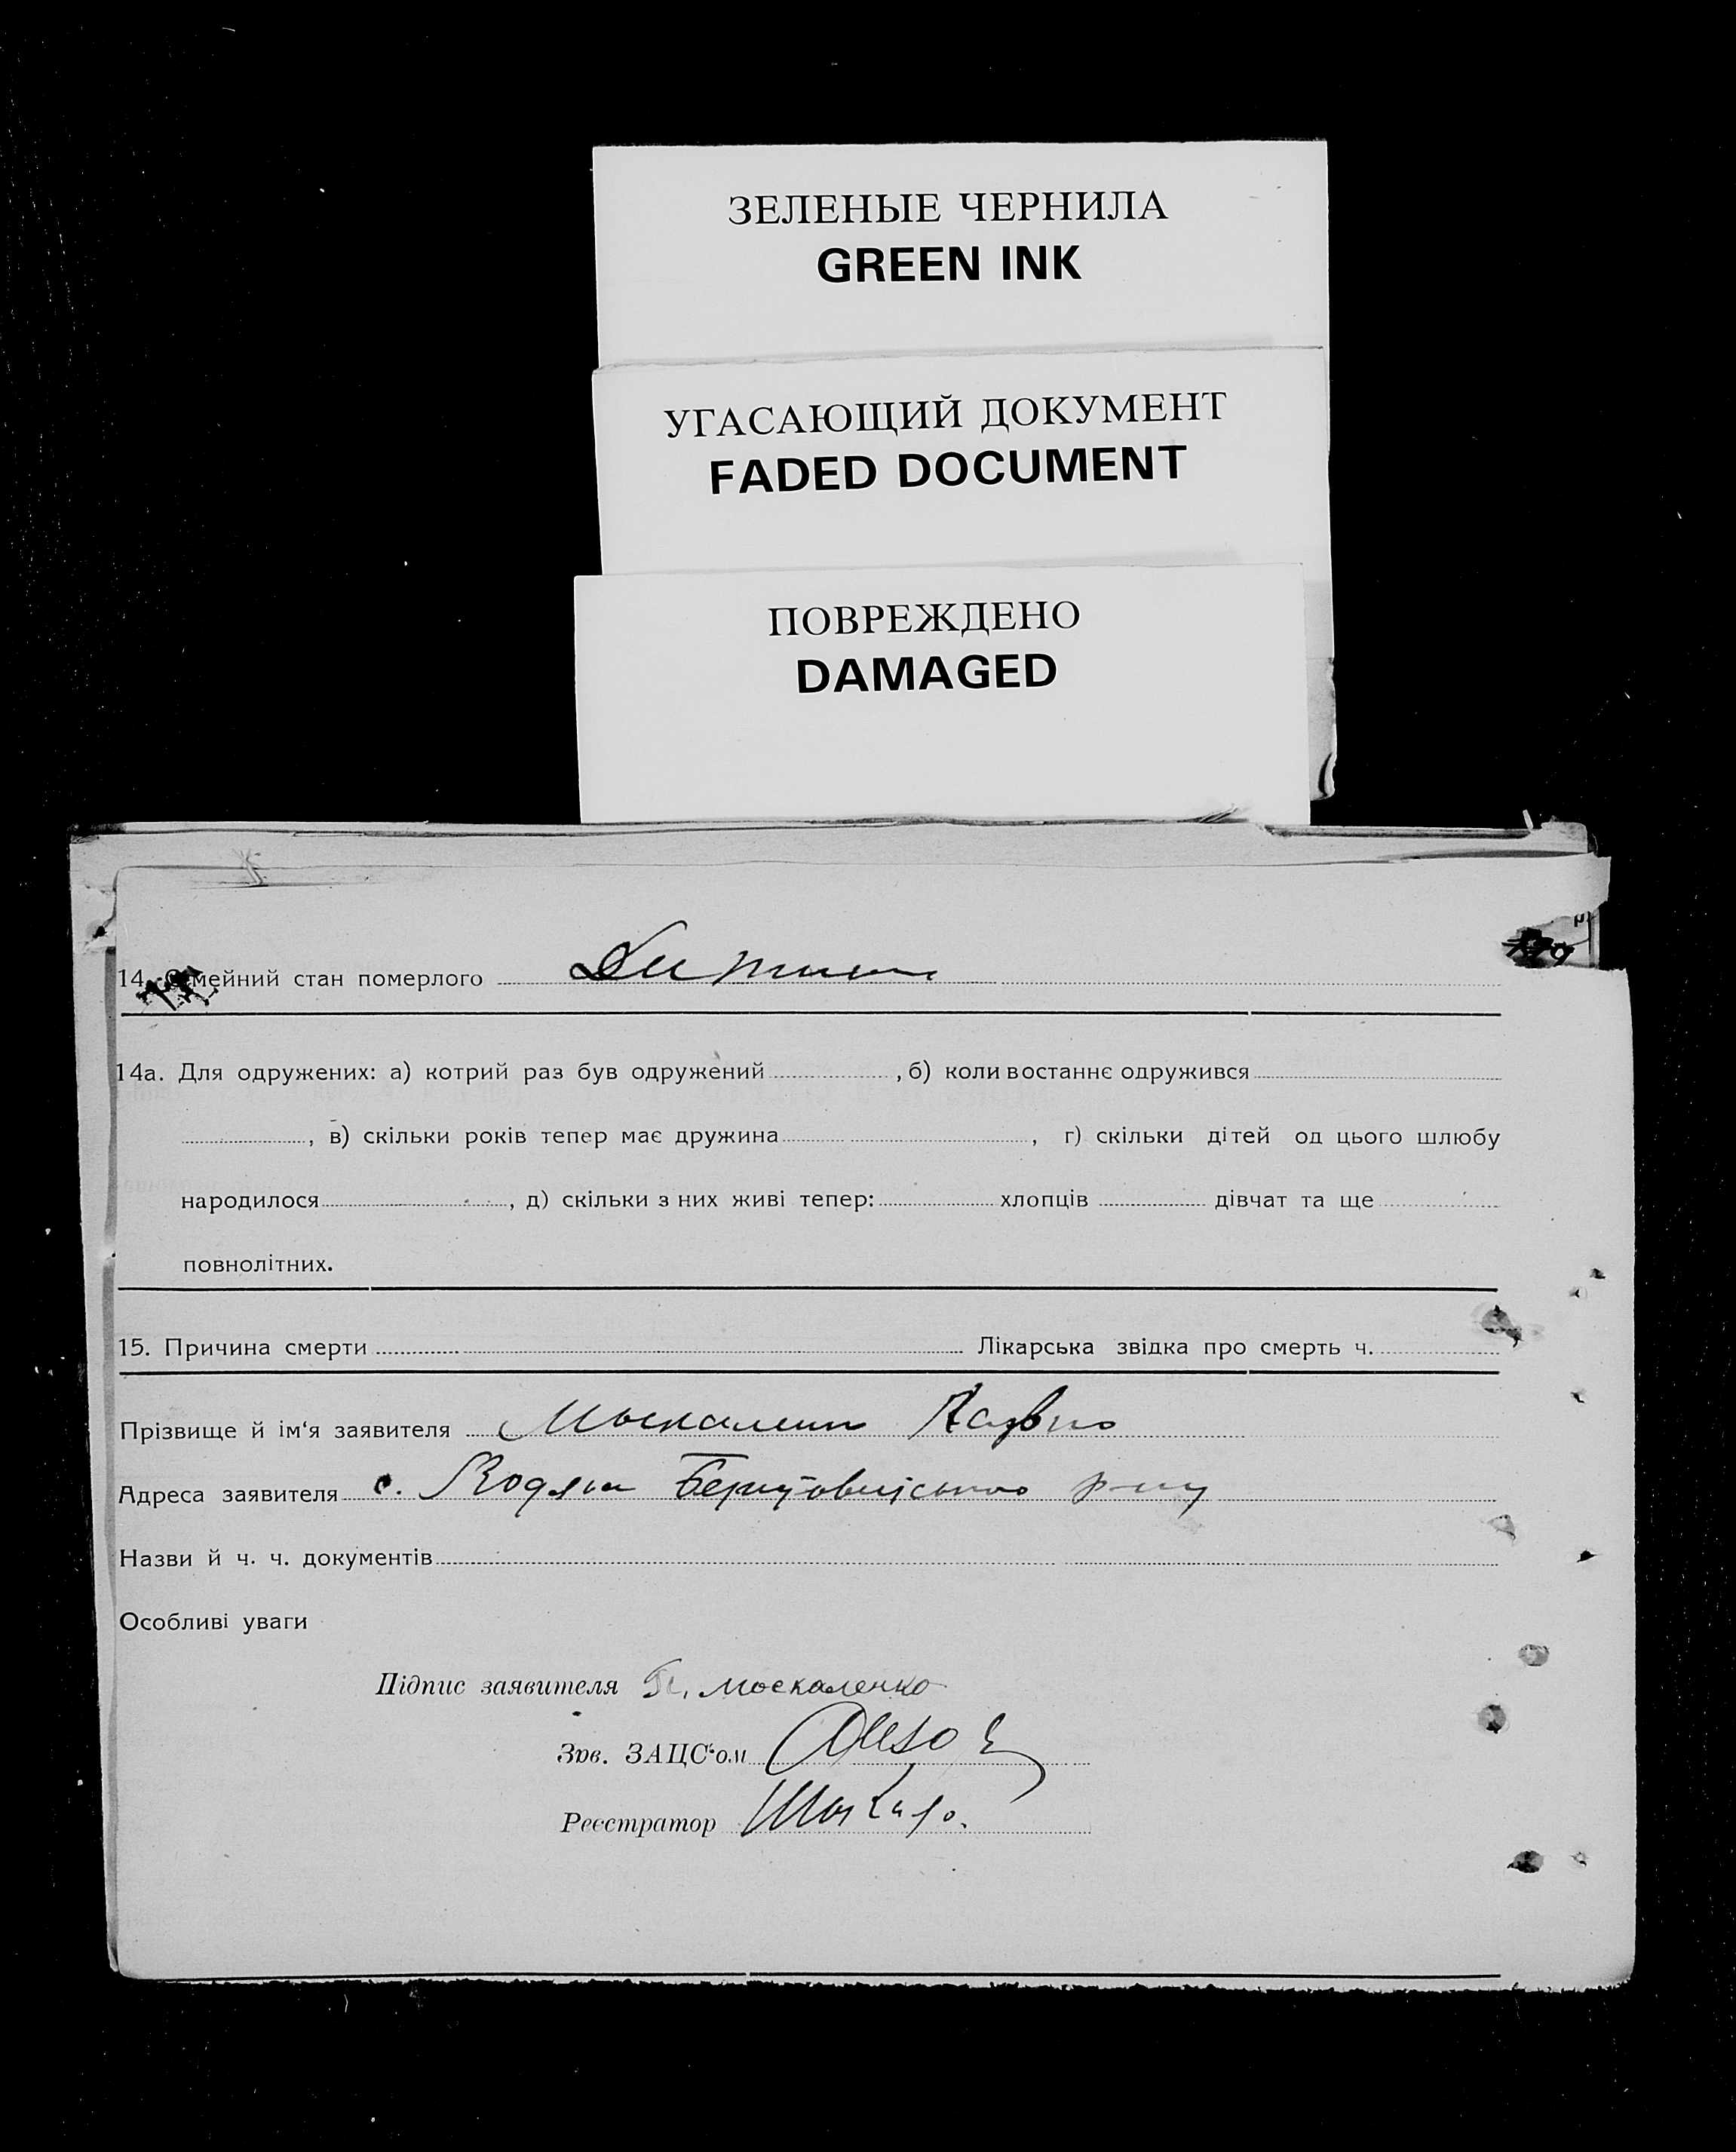 ЗЕЛЕНЫЕ ЧЕРНИЛА
GREEN INK
УГАСАЮЩИЙ ДОКУМЕНТ
FADED DOCUMENT
ПОВРЕЖДЕНО
DAMAGED
14. Семейний стан померлого
14а. Для одружених: а) котрий раз був одружений , б) коли востаннє одружився
, в) скільки років тепер має дружина , г) скільки дітей од цього шлюбу
народилося , д) скільки з них живі тепер: хлопців дівчат та ще
повнолітних.
15. Причина смерти Лікарська звідка про смерть ч.
Прізвище й ім'я заявителя
Адреса заявителя с.
Назви й ч. ч. документів
Особливі уваги
Підпис заявителя москаленко
Зав. ЗАЦС'ом
Реєстратор